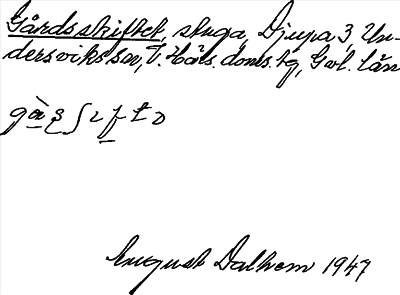 Gårdsskiftet, stuga, Djupa 3, Un-
dersviks sn, V. Häls. doms. hg, Gvl. län
August Dalhem 1947